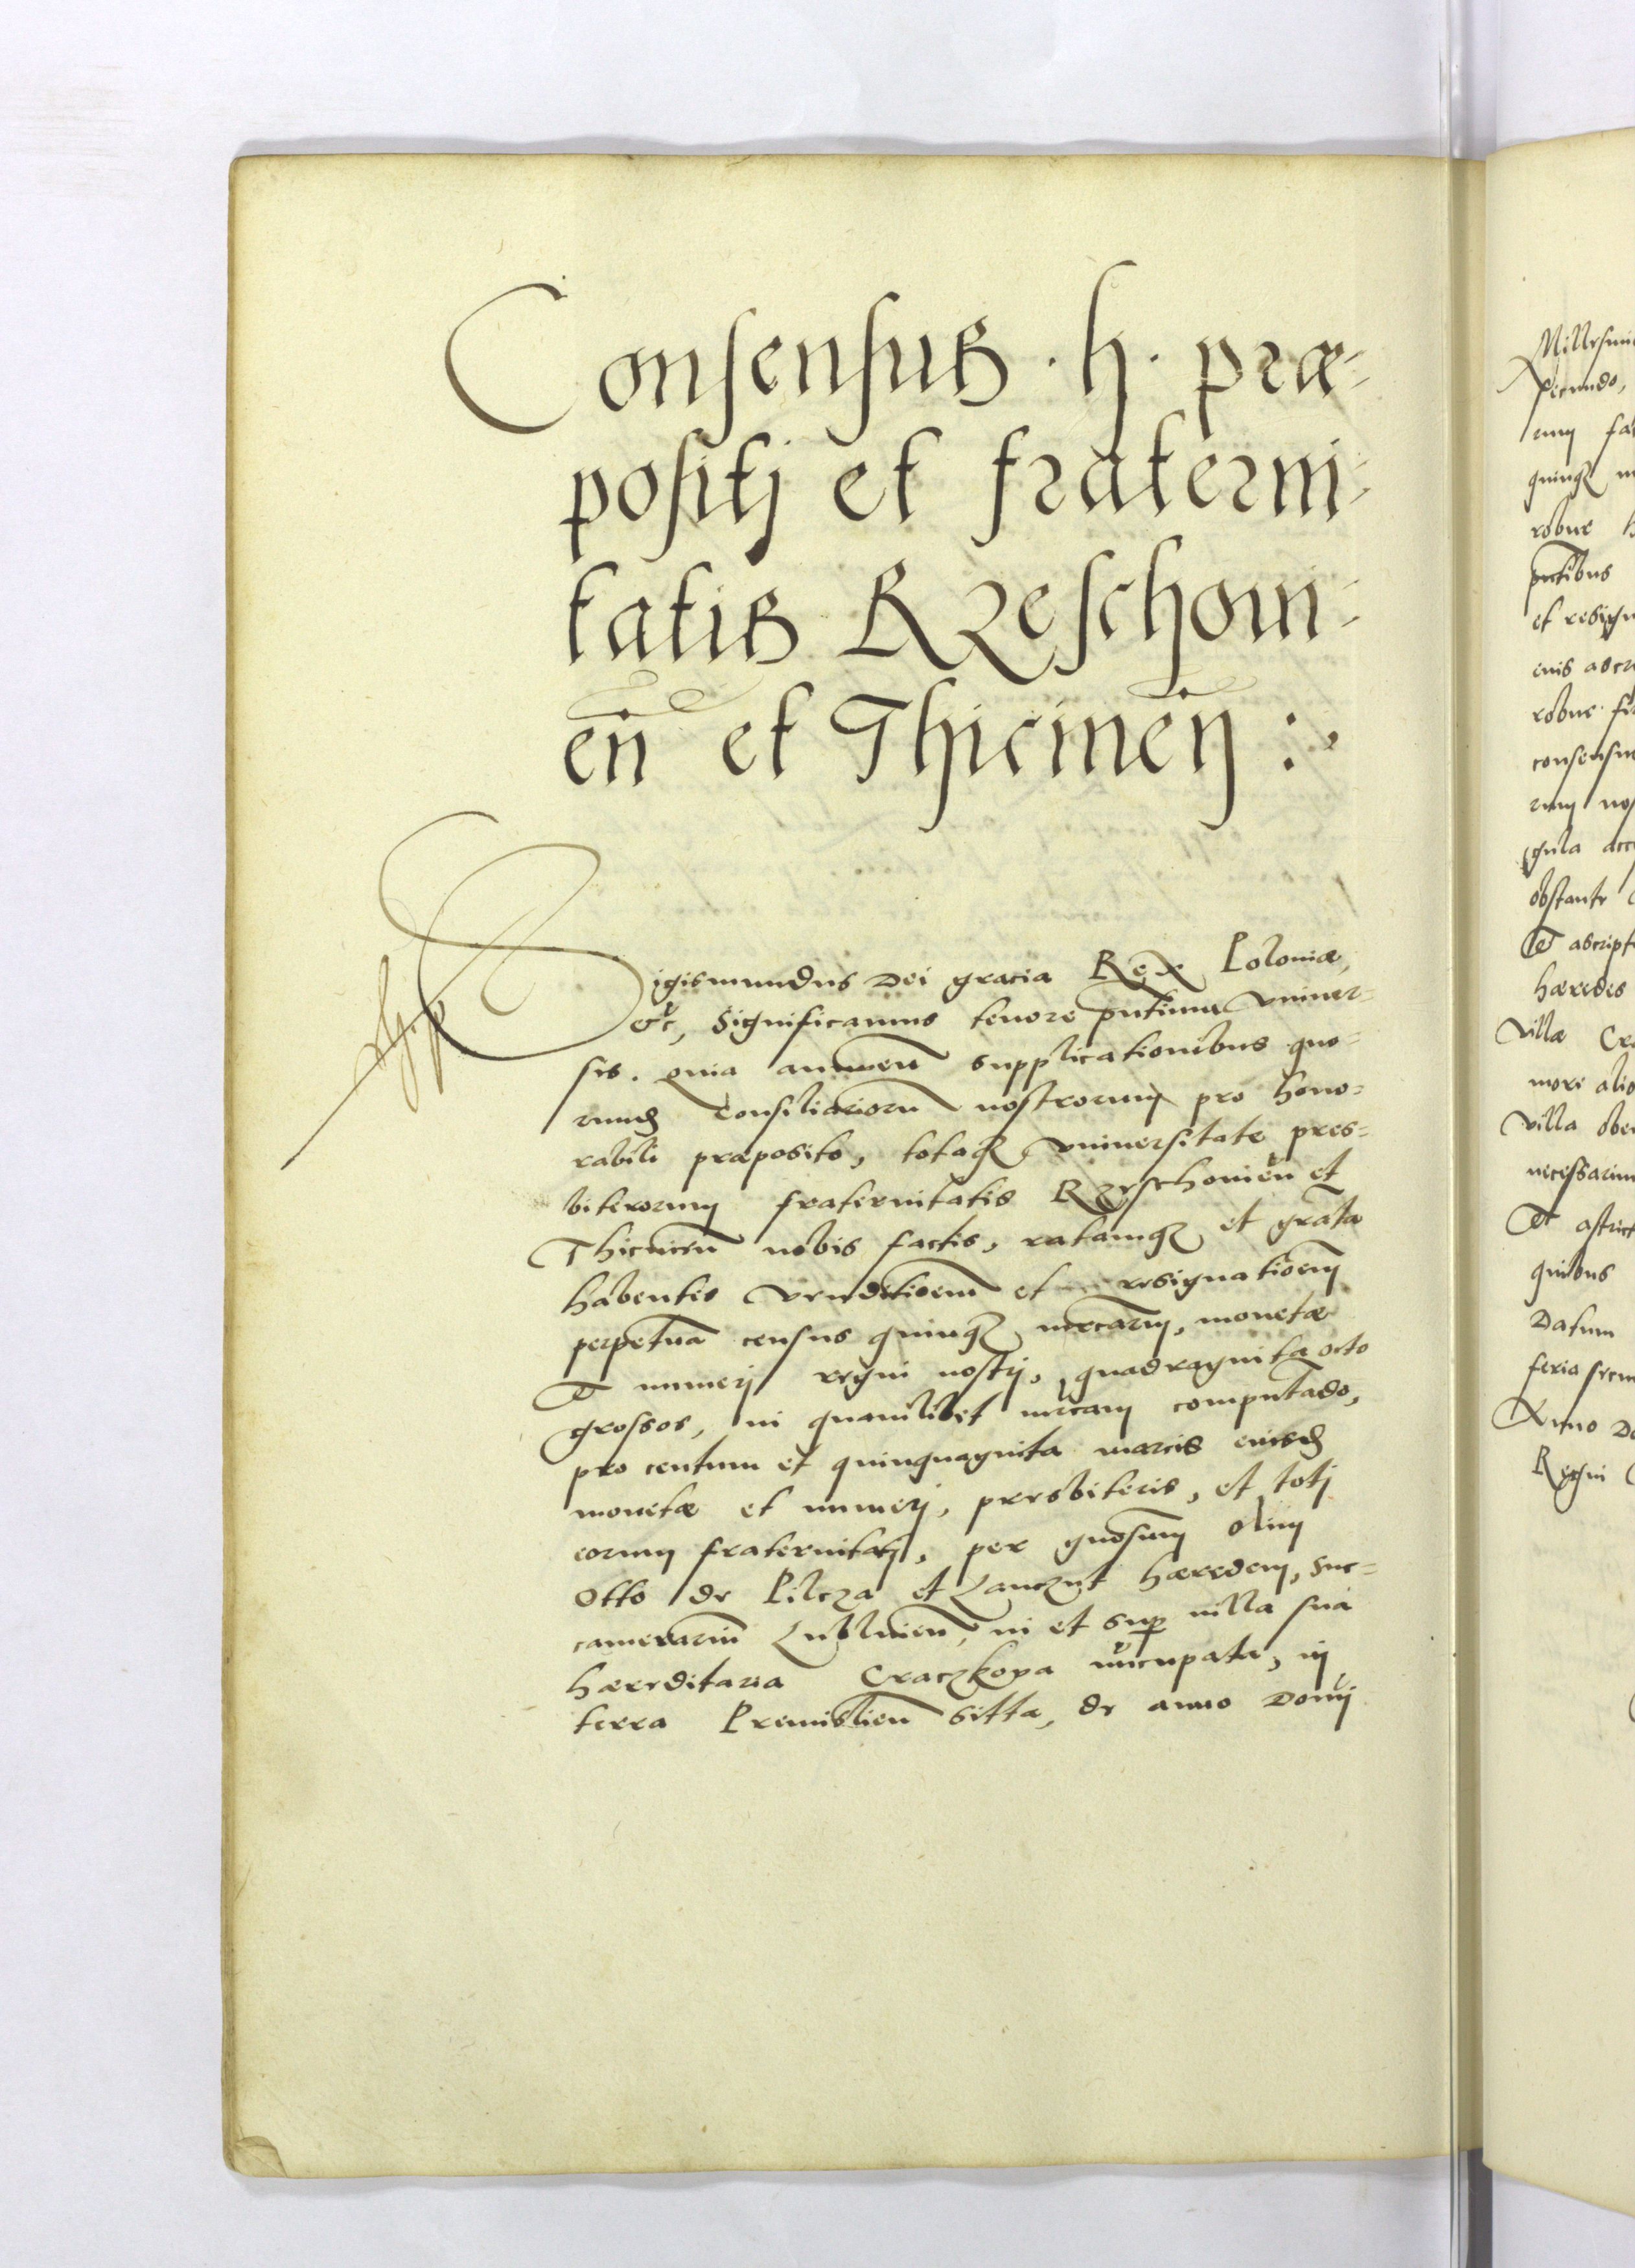 Consensus . h . præ-
positj et fraterni-
tatis Rzeschoni-
en̄ et Thicinen̄ :
Sigismundus Dei gracia Rex Poloniæ,
etc, Significamus tenore pn̄tium vniuer-
sis. Quia annuen̄ supplicationibus quo-
rund consiliarioru̅ nostrorum pro hono-
rabili præposito, totaq vniuersitate pres-
biterorum fraternitatis Rzeschonien̄ et
Thicinien̄ nobis factis, ratamq et grata̅
habentes venditioem̄ et resignatioem̄
perpetua̅ census quinq mrcarum, monetæ
Et numerj regni nostrj, quadraginta octo
grossos, in quamlibet mrcam computa̅do,
pro centum et quinquaginta marcis eiusd
monetæ et numerj, presbiteris, et totj
eorum fraternitatj, per gnosum̄ olim
Otto de Pilcza et Lanczut hæredem, suc-
camerariu̅ Lublinien̄, in et sup villa sua
hæreditaria Craczkowa nu̅cupata, in
terra Premislien̄ sitta, de anno Domj
Millesim
rum
quinq
robur
pn̄tibus
et resign
robur
consensu
rum nos
obstante
Et ascript
hæredes
villæ Cra
more alio
villa
necessarium
Et astrict
quibus
Datum
feria secu
Anno Do
Regni